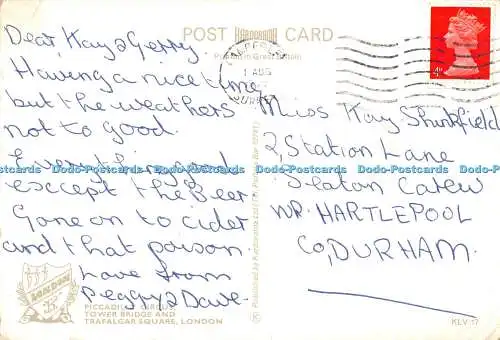 POST CARD
Printed in Great Britain
1 AUG
4D
Dear Kay & Gerry.
Having a nice time
but the weathers
not to good.
Everything good
except the Beer
Gone on to cider
and that poison.
Love from
Peggy & Dave.
Miss Kay
2, Station Lane
Seaton Carew
NR. HARTLEPOOL
Co, DURHAM.
Dodo-Postcards Dodo-Postcards Dodo-Postcards Dodo-Postcards Dodo-Postcards
LONDON
PICCADILLY CIRCUS,
TOWER BRIDGE AND
TRAFALGAR SQUARE, LONDON
KLV 17